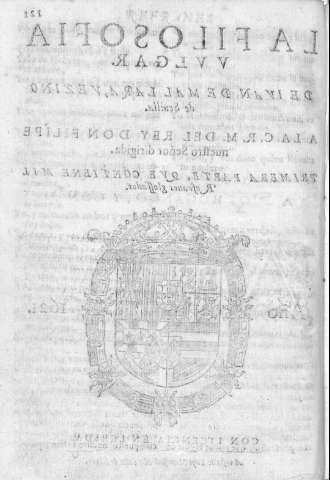 LA FILOSOFIA
VVLGAR.
DE IVAN DE MAL LARA, VEZINO
de Seuilla.
A LA C. R. M. DEL REY DON FELIPE
nuestro Señor dirigida.
PRIMERA PARTE, QVE CONTIENE MIL
Refranes glossados.
Año 1621.
CON LICENCIA, EN LERIDA.